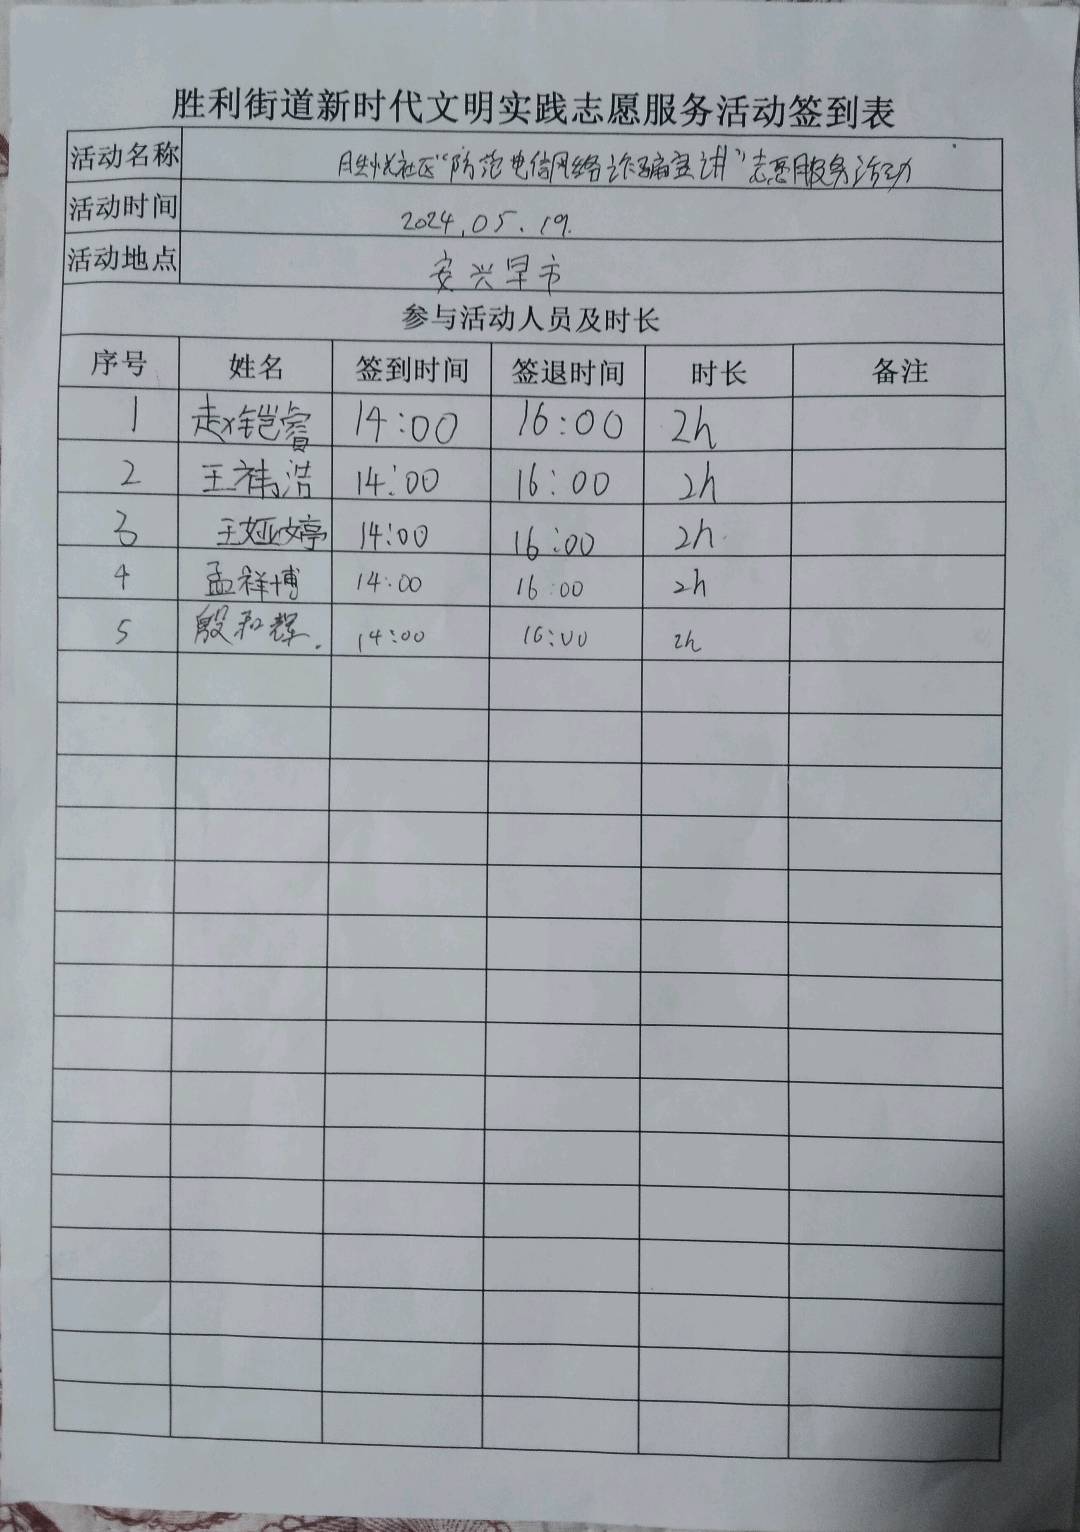 胜利街道新时代文明实践志愿服务活动签到表
活动名称 胜悦社区“防范电信网络诈骗宣讲”志愿服务活动
活动时间 2024.05.19.
活动地点 安兴早市
参与活动人员及时长
序号 姓名 签到时间 签退时间 时长 备注
1 赵铠睿 14:00 16:00 2h
2 王祎浩 14:00 16:00 2h
3 王娅婷 14:00 16:00 2h
4 孟祥博 14:00 16:00 2h
5 殷和辉. 14:00 16:00 2h